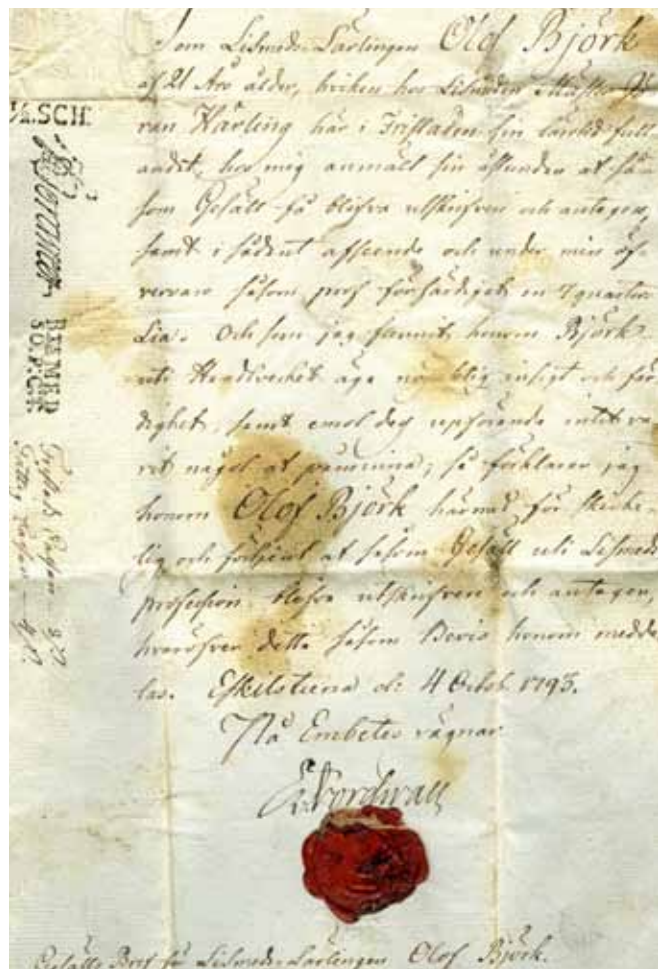 Som Lissmeds Lärlingen Olof Björk
af 21 Års ålder, hvilken hos Mäster
ran Härling här i Fristaden sin lärotid full
ändt, hos mig anmält sin åstundan at få
som Gesäll få blifva utskrifven och antagen,
samt i sådant afseende och under min öf
vervaro såsom prof förfärdigat en quarter
Lia. Och som jag funnit honom Björk
uti Handtverket äga nöijelig insigt och fär
dighet, samt emot des upförande intet va
rit något at påminna; så förklarar jag
honom Olof Björk härmed för skicke-
lig och förtjent at såsom Gesäll uti Lismeds
profession blifva utskrifven och antagen,
hvaröfver detta såsom Bevis honom medde
las. Eskilstuna d: 4 Octob. 1793.
På Embetes vägnar
Nordwall
Gesälls Bref för Lismeds Lärlingen Olof Björk.
SCH.
Fristads Cassan
Fattig Cassan